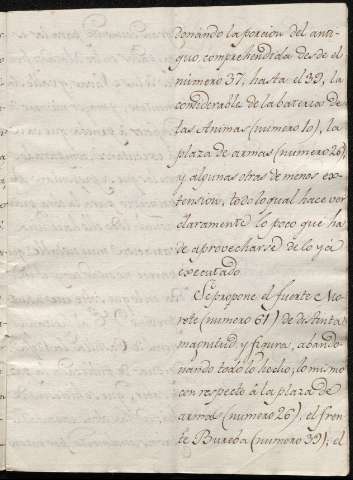 donando la porcion del anti-
guo, comprehendida desde el
número 37, hasta el 39, la
considerable de la bateria de
las Animas (numero 10), la
plaza de armas (numero 26),
y algunas otras de menos ex-
tension, todo lo qual hace ver
claramente lo poco que há
de aprovecharse de lo yá
executado.
Se propone el fuerte No-
rte (numero 61) de distinta
magnitud, y figura, abando-
nando todo lo hecho; lo mismo
con respecto á la plaza de
armas (numero 26), el fren-
te Bureba (numero 39); el